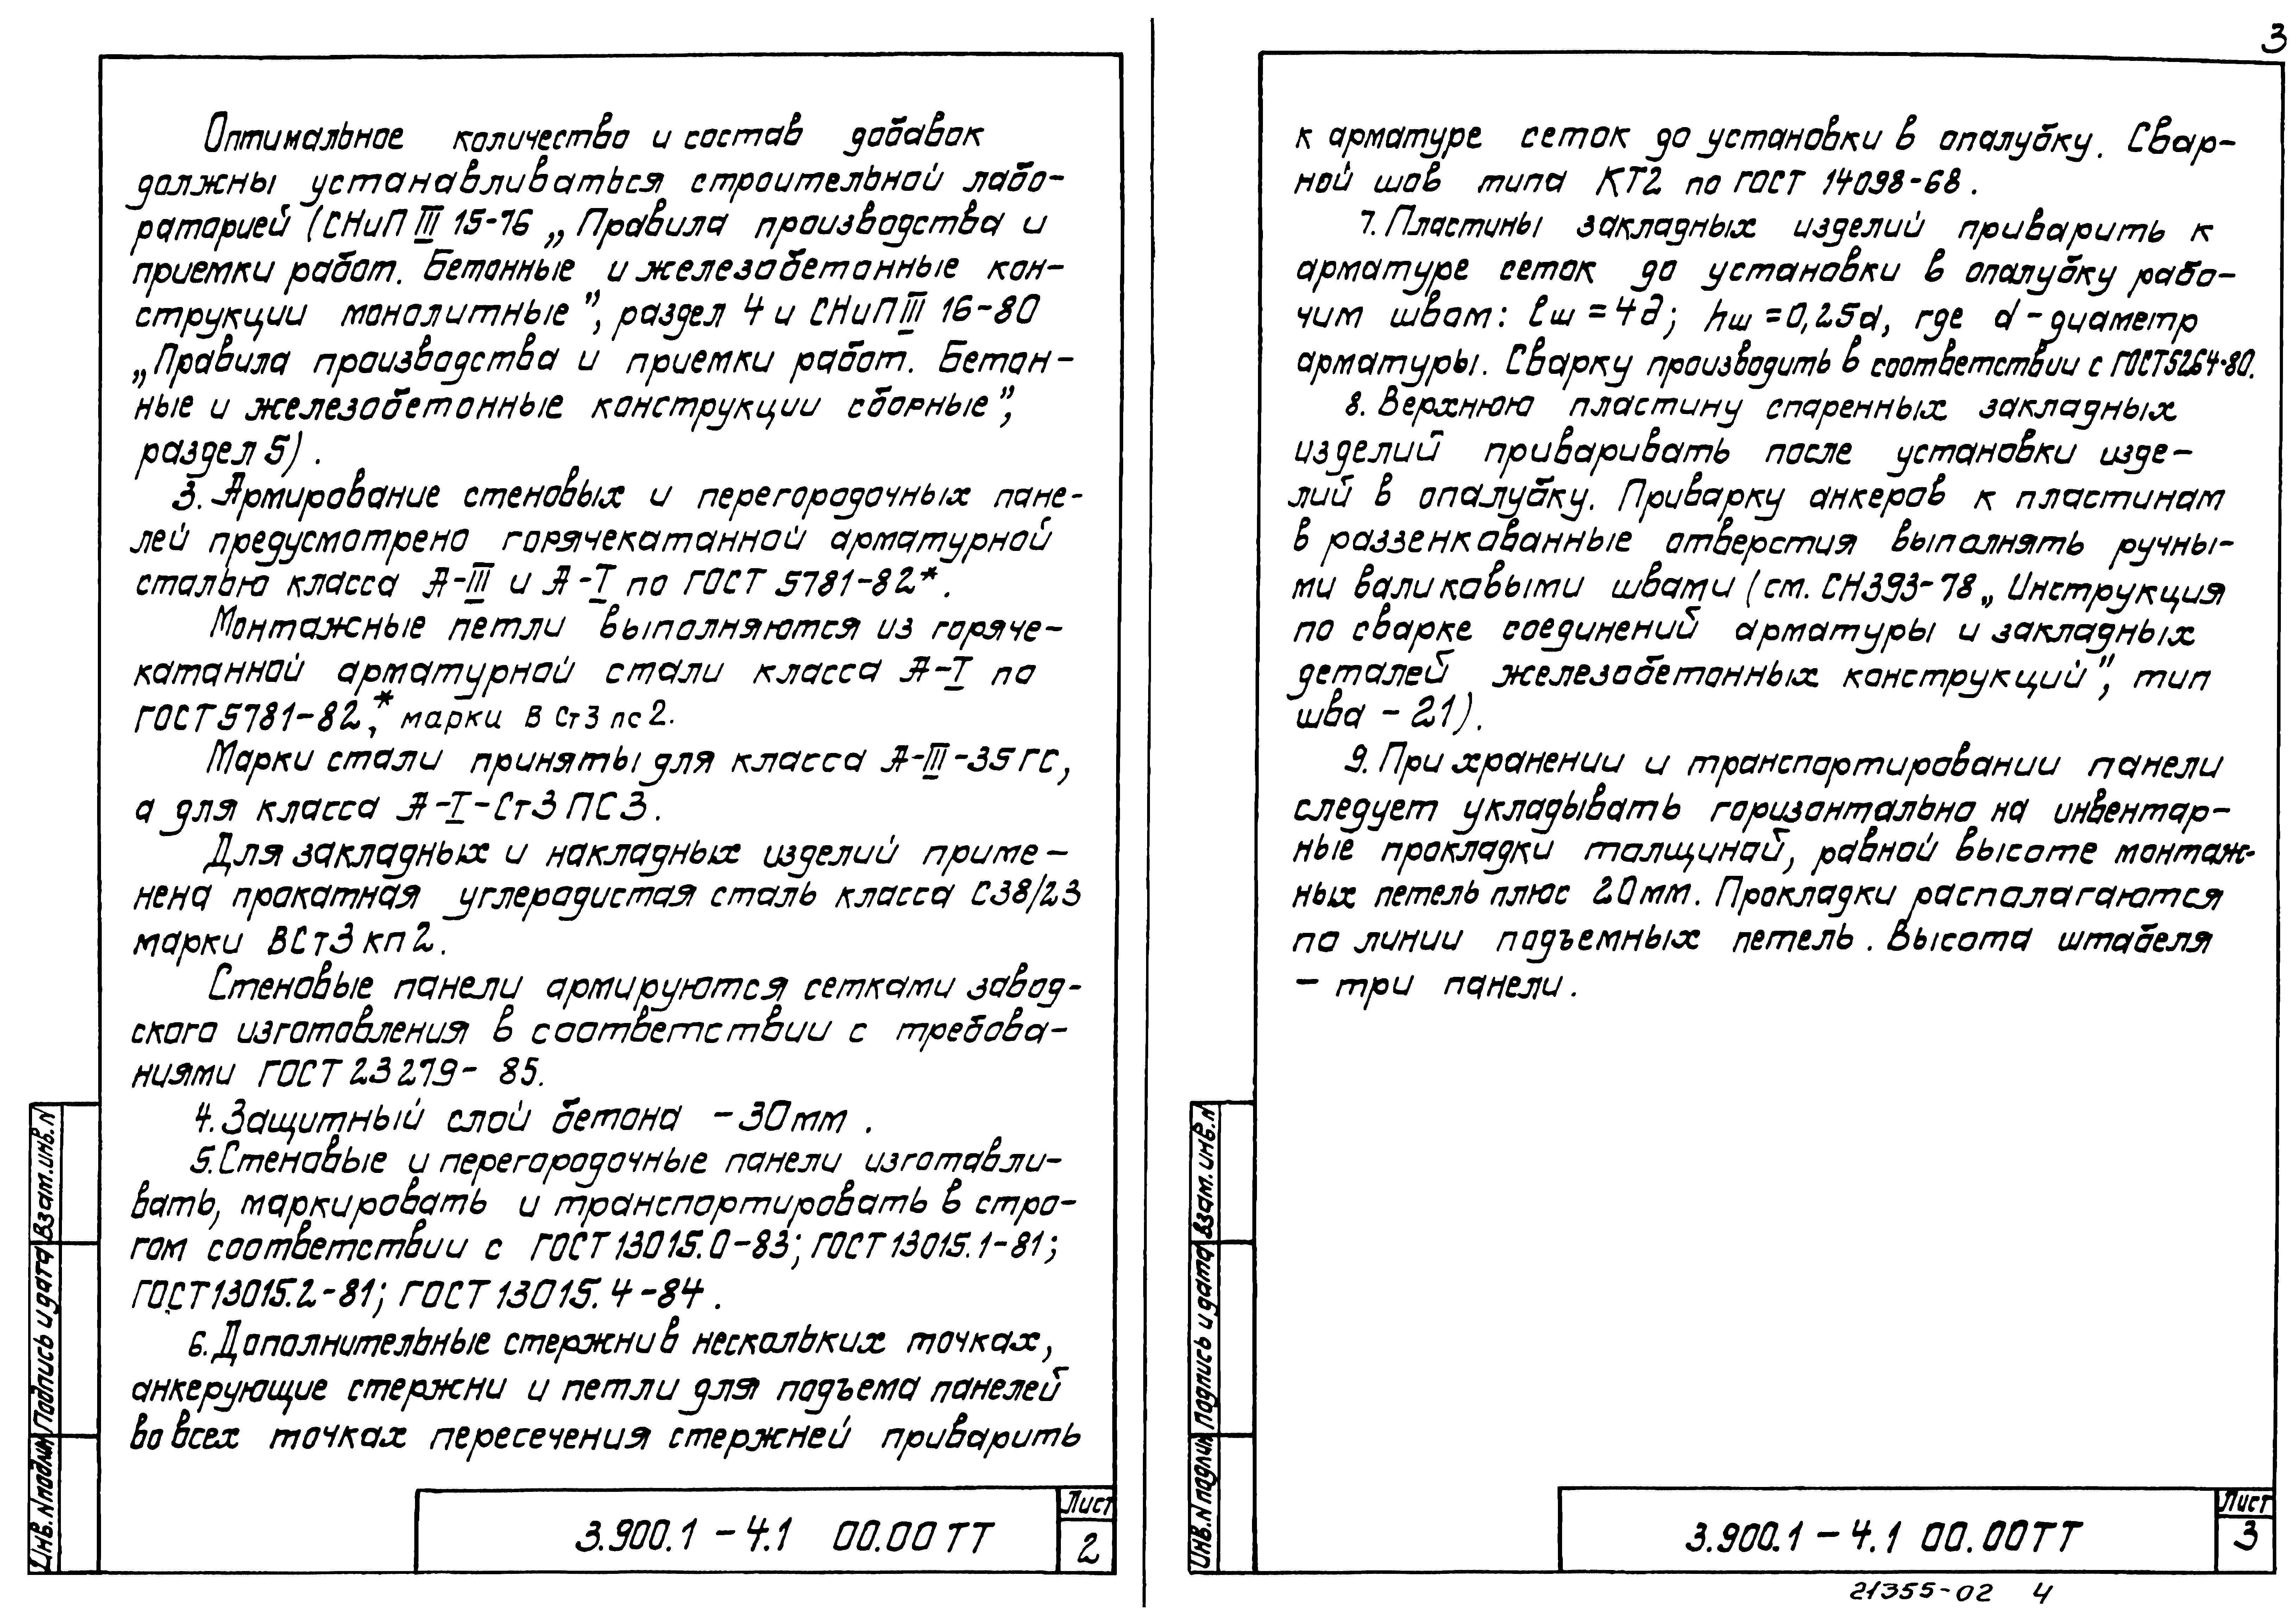 Оптимальное количество и состав добавок
должны устанавливаться строительной лабо-
раторией (СНиП III 15-76 „Правила производства и
приемки работ. Бетонные и железобетонные кон-
струкции монолитные”, раздел 4 и СНиП III 16-80
„Правила производства и приемки работ. Бетон-
ные и железобетонные конструкции сборные”,
раздел 5).
3. Армирование стеновых и перегородочных пане-
лей предусмотрено горячекатанной арматурной
сталью класса А-III и А-I по ГОСТ 5781-82*.
Монтажные петли выполняются из горяче-
катанной арматурной стали класса А-I по
ГОСТ 5781-82*, марки ВСт3пс2.
Марки стали приняты для класса А-III-35ГС,
а для класса А-I-Ст3ПС3.
Для закладных и накладных изделий приме-
нена прокатная углеродистая сталь класса С38/23
марки ВСт3кп2.
Стеновые панели армируются сетками завод-
ского изготовления в соответствии с требова-
ниями ГОСТ 23279-85.
4. Защитный слой бетона - 30мм.
5. Стеновые и перегородочные панели изготавли-
вать, маркировать и транспортировать в стро-
гом соответствии с ГОСТ 13015.0-83; ГОСТ 13015.1-81;
ГОСТ 13015.2-81; ГОСТ 13015.4-84.
6. Дополнительные стержни в нескольких точках,
анкерующие стержни и петли для подъема панелей
во всех точках пересечения стержней приварить
3.900.1-4.1 00.00ТТ
Лист
2
Взам.инв.N
Подпись и дата
Инв.N подлин
3
к арматуре сеток до установки в опалубку. Свар-
ной шов типа КТ2 по ГОСТ 14098-68.
7. Пластины закладных изделий приварить к
арматуре сеток до установки в опалубку рабо-
чим швом: lш=4d; hш=0,25d, где d-диаметр
арматуры. Сварку производить в соответствии с ГОСТ5264-80.
8. Верхнюю пластину спаренных закладных
изделий приваривать после установки изде-
лий в опалубку. Приварку анкеров к пластинам
в раззенкованные отверстия выполнять ручны-
ми валиковыми швами (см. СН393-78 „Инструкция
по сварке соединений арматуры и закладных
деталей железобетонных конструкций”, тип
шва - 21).
9. При хранении и транспортировании панели
следует укладывать горизонтально на инвентар-
ные прокладки толщиной, равной высоте монтаж-
ных петель плюс 20мм. Прокладки располагаются
по линии подъемных петель. Высота штабеля
- три панели.
3.900.1-4.1 00.00ТТ
Лист
3
Взам.инв.N
Подпись и дата
Инв.N подлин
21355-02 4